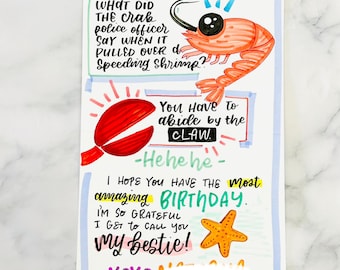 WHAT DID
THE CRAB
POLICE OFFICER
SAY WHEN IT
PULLED OVER A
SPEEDING SHRIMP?
YOU HAVE TO
abide by the
CLAW.
-Hehehe-
I HOPE YOU HAVE THE most
amazing BIRTHDAY.
I'M SO GRATEFUL
I GET TO CALL YOU
MY bestie!